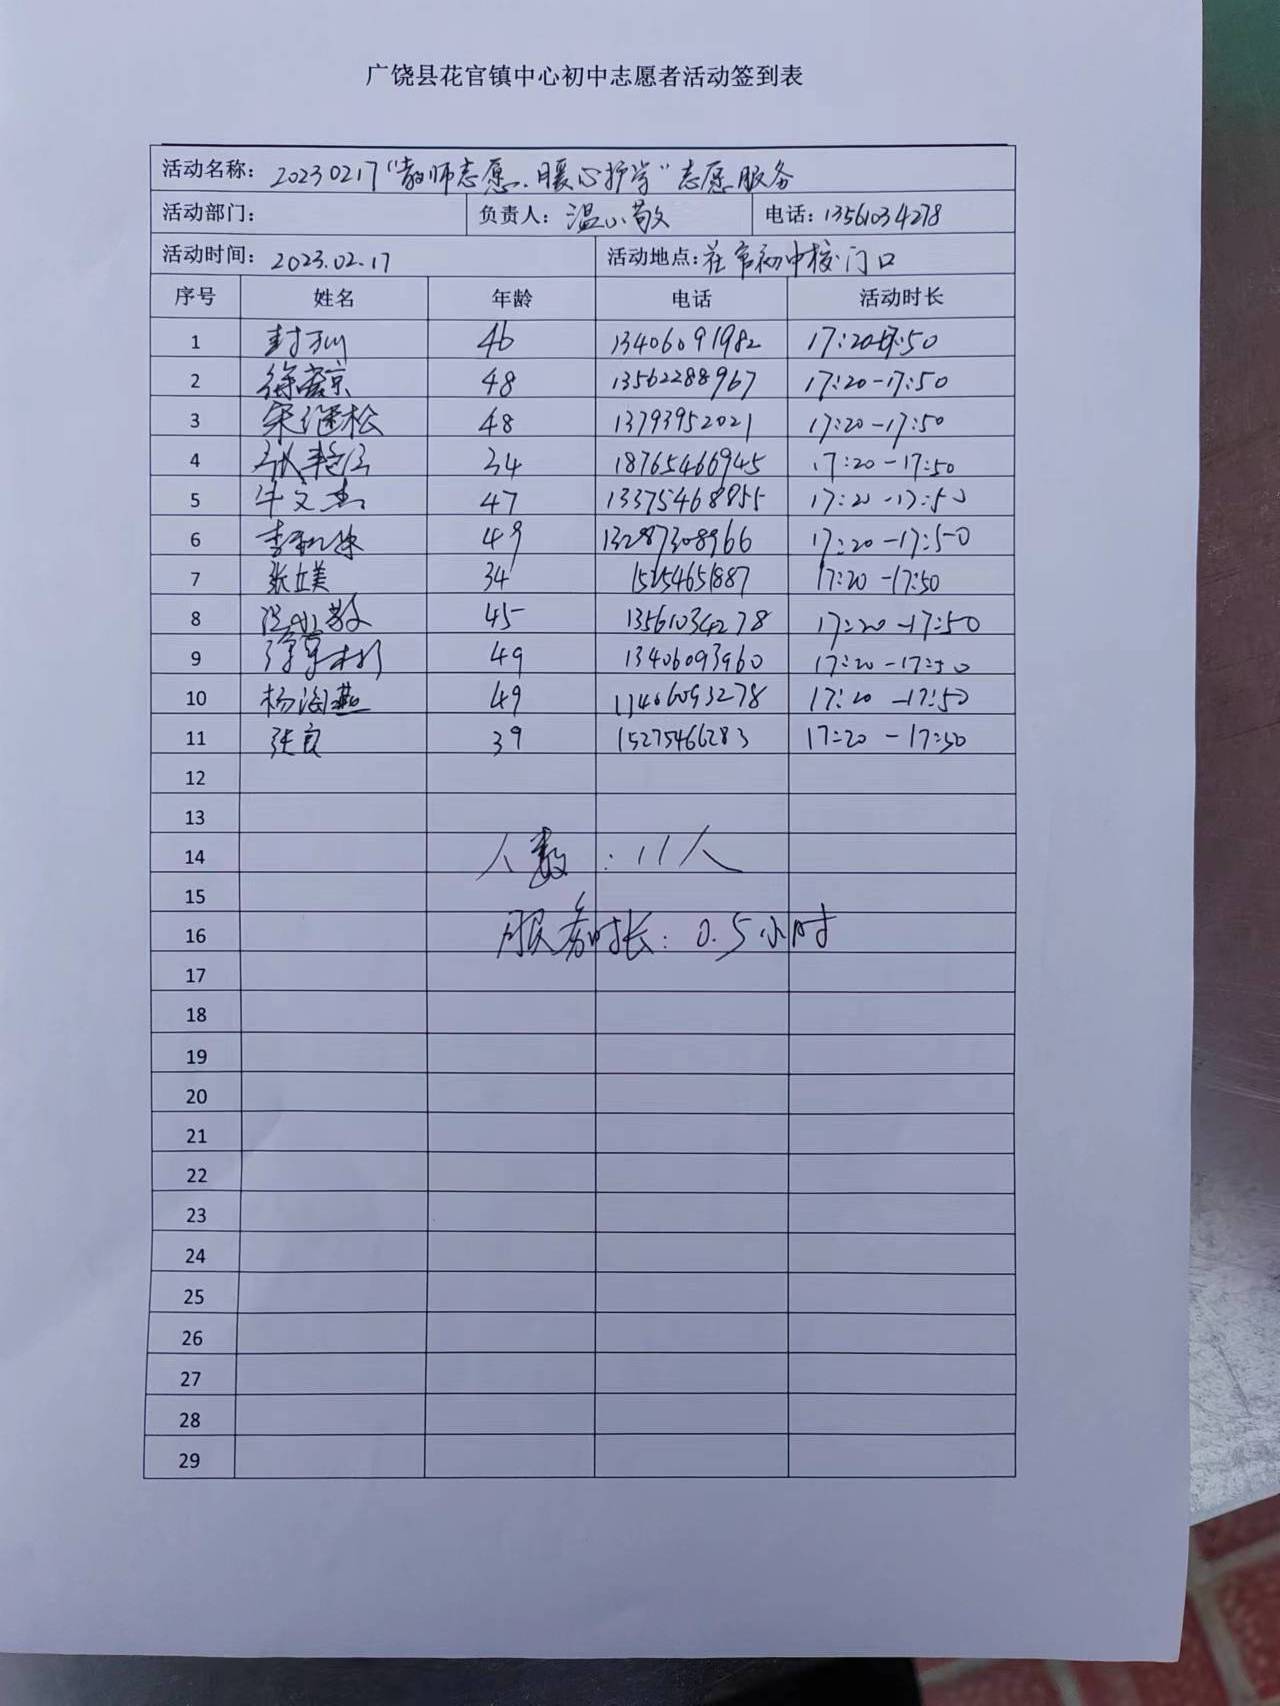 广饶县花官镇中心初中志愿者活动签到表
活动名称: 20230217“教师志愿、暖心护学”志愿服务
活动部门: 负责人: 温小敬 电话: 13561034278
活动时间: 2023.02.17 活动地点: 花官初中校门口
序号 姓名 年龄 电话 活动时长
1 46 13406091982 17:20-17:50
2 48 13562288967 17:20-17:50
3 宋继松 48 13793952021 17:20-17:50
4 34 18765466945 17:20-17:50
5 牛文杰 47 13375468855 17:20-17:50
6 49 13287308966 17:20-17:50
7 张立美 34 15254651887 17:20-17:50
8 温小敬 45 13561034278 17:20-17:50
9 49 13406093960 17:20-17:50
10 杨海燕 49 13406093278 17:20-17:50
11 张良 39 15275466283 17:20-17:50
12
13
14 人数: 11人
15
16 服务时长: 0.5小时
17
18
19
20
21
22
23
24
25
26
27
28
29